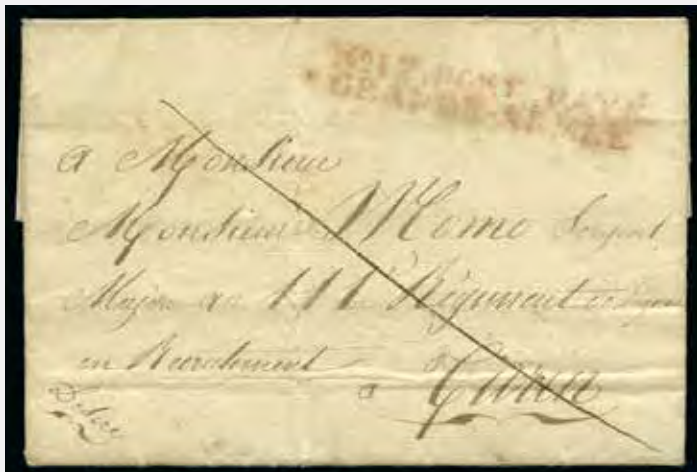 GRANDE-ARMÉE
a Monsieur
Monsieur Momo Sergent
Major au 111e Régiment
en Recrutement
a Turin